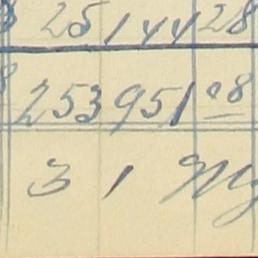 25144 28
253951 08
3 1